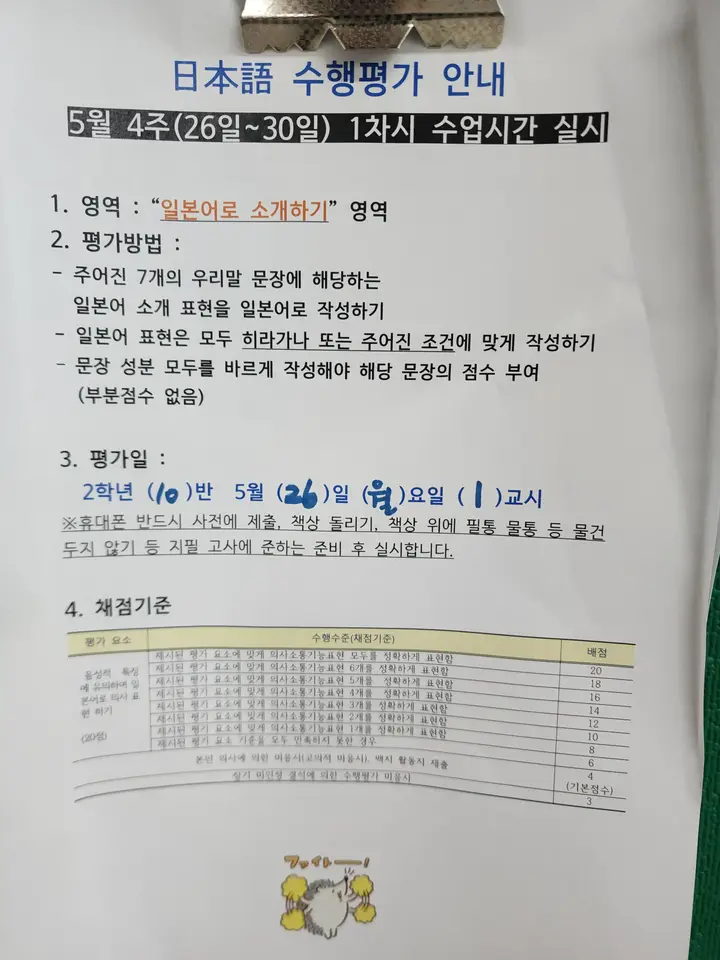 日本語 수행평가 안내
5월 4주(26일~30일) 1차시 수업시간 실시
1. 영역 : “일본어로 소개하기” 영역
2. 평가방법 :
- 주어진 7개의 우리말 문장에 해당하는
일본어 소개 표현을 일본어로 작성하기
- 일본어 표현은 모두 히라가나 또는 주어진 조건에 맞게 작성하기
- 문장 성분 모두를 바르게 작성해야 해당 문장의 점수 부여
(부분점수 없음)
3. 평가일 :
2학년 (10)반 5월 (26)일 (월)요일 (1)교시
※휴대폰 반드시 사전에 제출, 책상 돌리기, 책상 위에 필통 물통 등 물건
두지 않기 등 지필 고사에 준하는 준비 후 실시합니다.
4. 채점기준
평가 요소 수행수준(채점기준) 배점
음성적 특징
에 유의하여 일
본어로 의사 표
현 하기
(20점)
제시된 평가 요소에 맞게 의사소통기능표현 모두를 정확하게 표현함 20
제시된 평가 요소에 맞게 의사소통기능표현 6개를 정확하게 표현함 18
제시된 평가 요소에 맞게 의사소통기능표현 5개를 정확하게 표현함 16
제시된 평가 요소에 맞게 의사소통기능표현 4개를 정확하게 표현함 14
제시된 평가 요소에 맞게 의사소통기능표현 3개를 정확하게 표현함 12
제시된 평가 요소에 맞게 의사소통기능표현 2개를 정확하게 표현함 10
제시된 평가 요소에 맞게 의사소통기능표현 1개를 정확하게 표현함 8
제시된 평가 요소 기준을 모두 만족하지 못한 경우 6
본인 의사에 의한 미응시(고의적 미응시), 백시 활동지 제출 4
(기본점수)
장기 미인정 결석에 의한 수행평가 미응시 3
ファイトー!